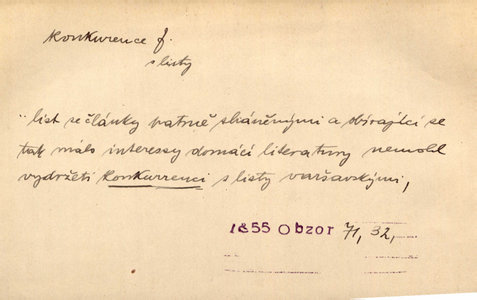 konkurence f.
s listy
„list se články patrně sháněnými a obírající se
tak málo interessy domácí literatury nemohl
vydržeti konkurrenci s listy varšavskými,
1855 Obzor 71, 32,